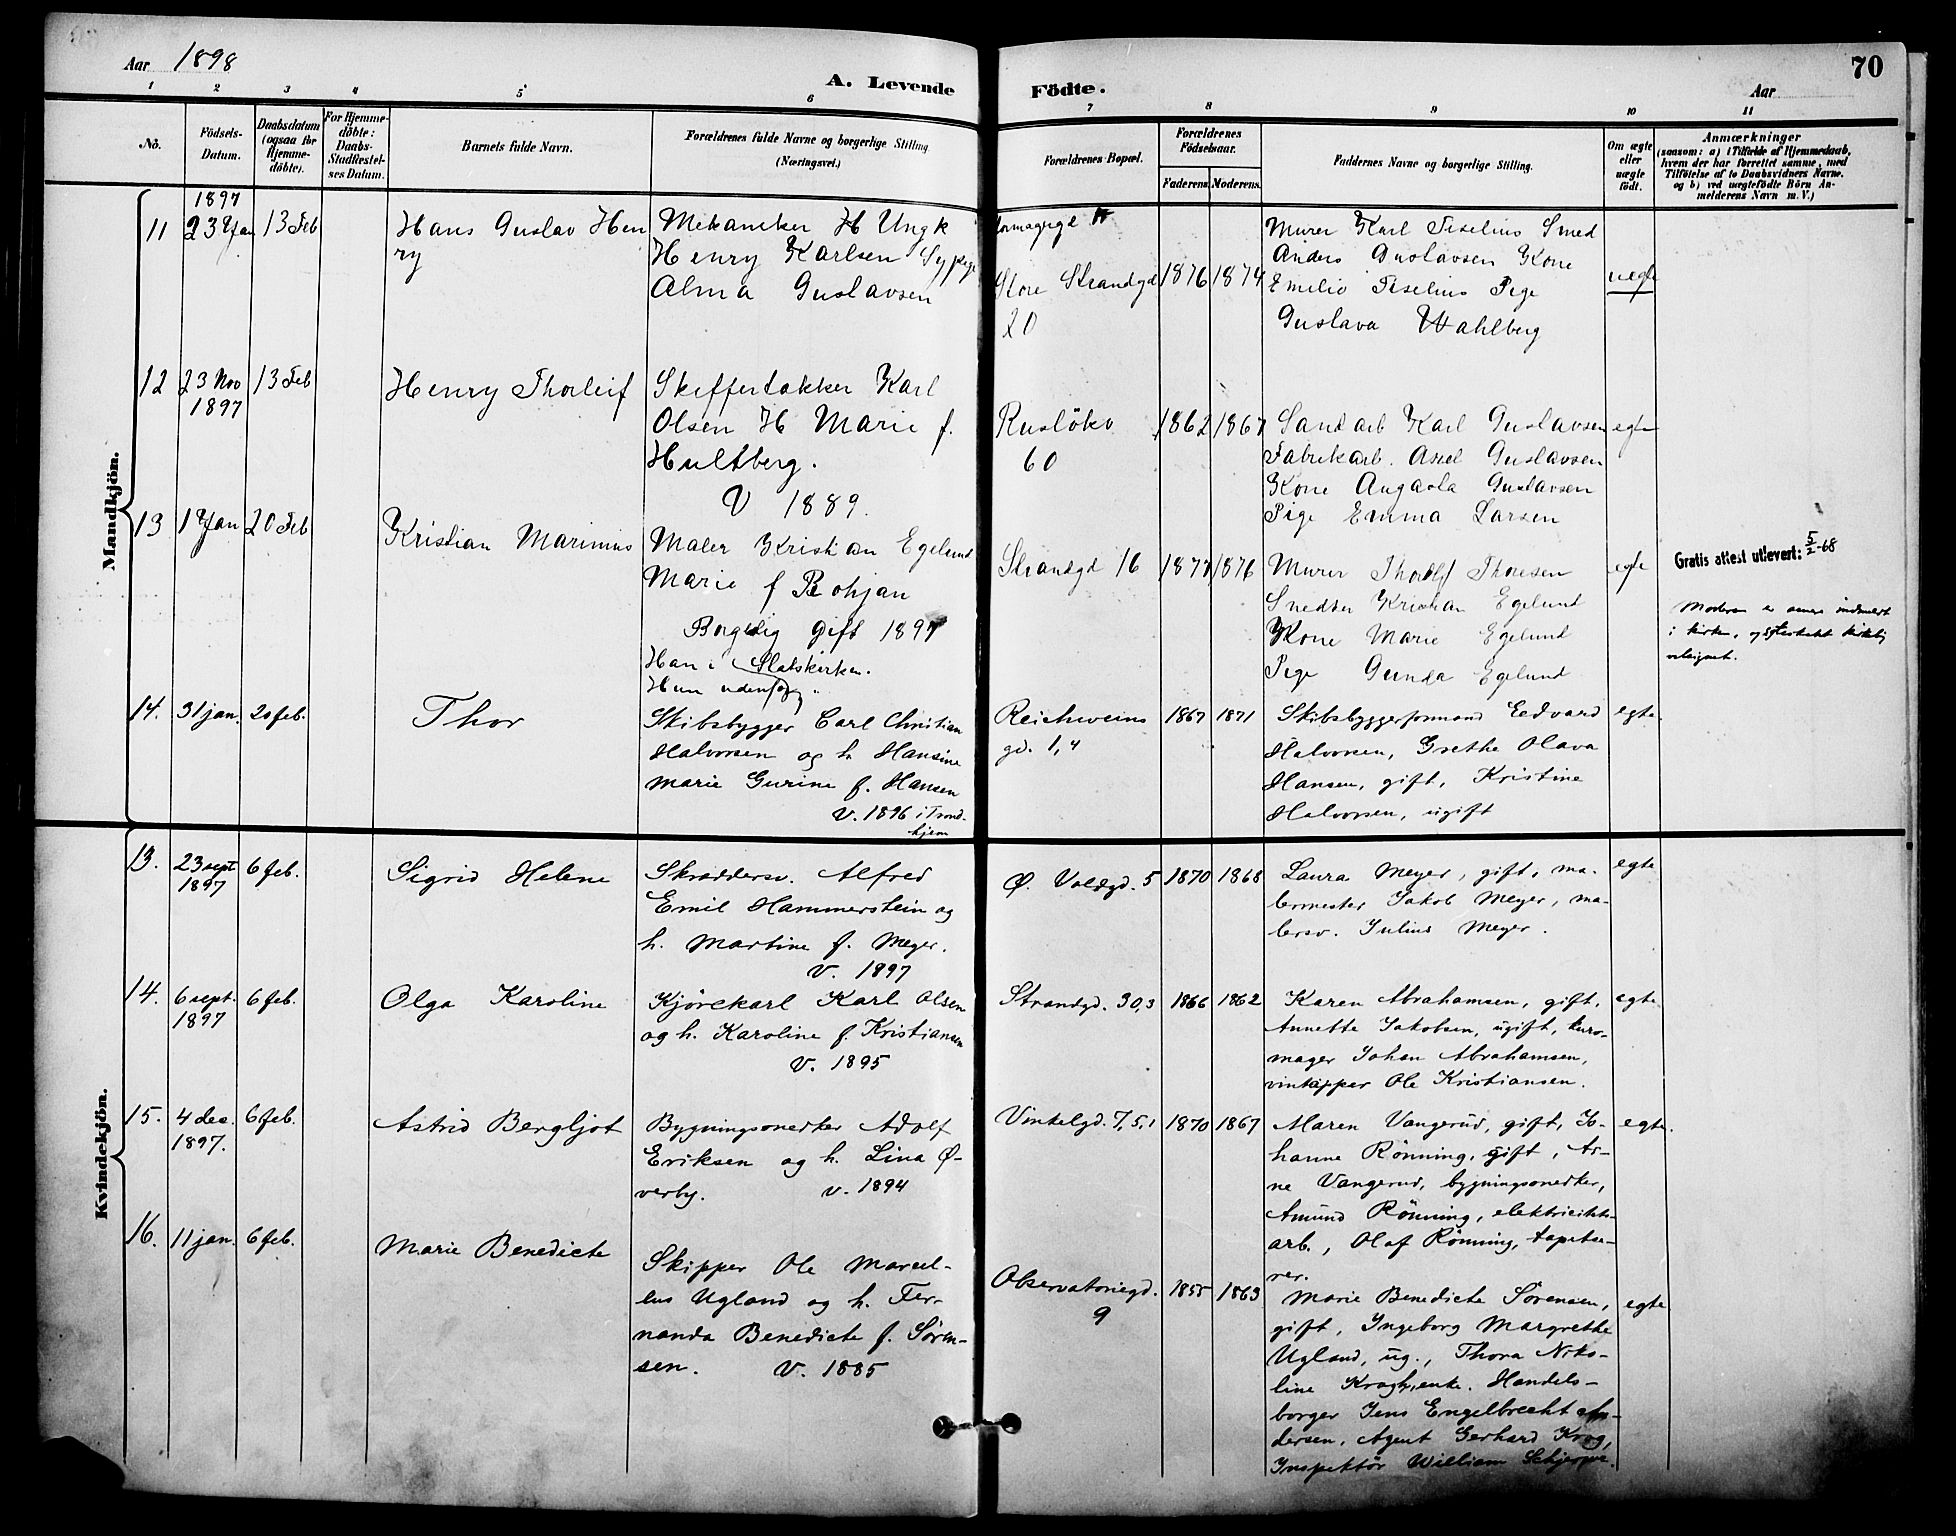 Aar 1898
A. Levende Födte.
70
Aar
1 2 3 4 5 6 7 8 9 10 11
No.
Födsels-
Datum.
Daabsdatum
(ogsaa for
Hjemme-
döbte).
For Hjemme-
döbte:
Daabs-
Stadfæstel-
ses Datum.
Barnets fulde Navn.
Forældrenes fulde Navne og borgerlige Stilling
(Næringsvei.)
Forældrenes Bopæl.
Forældrenes
Födselsaar.
Faderens. Moderens.
Faddernes Navne og borgerlige Stilling.
Om ægte
eller
uægte
födt.
Anmærkninger
(saasom: a) i Tilfælde af Hjemmedaab,
hvem der har forrettet samme, med
Tilföielse af to Daabsvidners Navne.
og b) ved uægtefödte Börn An-
melderens Navn m. V.)
Mandkjön.
1897
11 23 Jan 13 Feb
Hans Gustav Hen
ry
Mekaniker H Ungk
Henry Karlsen Sypige
Alma Gustavsen
Store Strandgd
20
1876 1874
Murer Karl Fiselius Smed
Anders Gustavsen Kone
Emilie Fiselius Pige
Gustava Wahlberg
uegte
12 23 Nov 13 Feb
1897
Henry Thorleif
Skiffertækker Karl
Olsen H Marie f.
Hultberg.
V 1889.
Rusløkv
60
1862 1867
Sandarb Karl Gustavsen
Fabrikarb. Axel Gustavsen
Kone Augusta Gustavsen
Pige Emma Larsen
egte
13 1 Jan 20 Feb
Kristian Marinius
Maler Kristian Egelund
Marie f Bohjan
Borgelig gift 1897
Han i Statskirken.
Hun udenfor "
Strandgd 16
1877 1876
Murer Thorolf Thoresen
Snedker Kristian Egelund
Kone Marie Egelund
Pige Gunda Egelund
egte
Gratis attest utlevert: 5/2-68
Moderen er senere indmeldt
i kirken, og egteskabet kirkelig
velsignet.
14. 31 jan. 20 feb.
Thor
Skibsbygger Carl Christian
Halvorsen og h. Hansine
Marie Gurine f. Hansen
V. 1896 i Trond-
hjem
Reichweins
gd. 1,4
1867 1871
Skibsbyggerformand Edvard
Halvorsen, Grethe Olava
Hansen, gift, Kristine
Halvorsen, ugift
egte
Kvindekjön.
13. 23 sept 6 feb.
1897
Sigrid Helene
Skræddersv. Alfred
Emil Hammerstein og
h. Martine f. Meyer.
V. 1897
Ø. Voldgd. 5
1870 1868
Laura Meyer, gift, ma-
lermester Jakob Meyer, ma-
lersv. Julius Meyer.
egte
14. 6 sept. 6 feb.
1897
Olga Karoline
Kjørekarl Karl Olsen
og h. Karoline f. Kristiansen
V. 1895
Strandgd. 30,3
1866 1862
Karen Abrahamsen, gift,
Annette Jakobsen, ugift, kurv-
mager Johan Abrahamsen,
vintapper Ole Kristiansen.
egte
15. 4 des. 6 feb.
1897.
Astrid Bergljot
Bygningssnedker Adolf
Eriksen og h. Lina Ø-
verby. V. 1894
Vinkelgd. 7,5,1
1870 1867
Maren Vangerud, gift, Jo-
hanne Rönning, gift, Ar-
ne Vangerud, bygningssnedker,
Amund Rönning, elektricitets-
arb., Olaf Rönning, tapetse-
rer.
egte.
16. 11 jan. 6 feb.
Marie Benedicte
Skipper Ole Marcel-
lus Ugland og h. Fer-
nanda Benedicte f. Sören-
sen. V. 1885
Observatoriegd.
9
1855 1863
Marie Benedicte Sörensen,
gift, Ingeborg Margrethe
Ugland, ug., Thora Niko-
line Krogh, enke. Handels-
borger Jens Engelbrecht An-
dersen, Agent Gerhard Krog,
Inspektör William Schjerpe.
egte